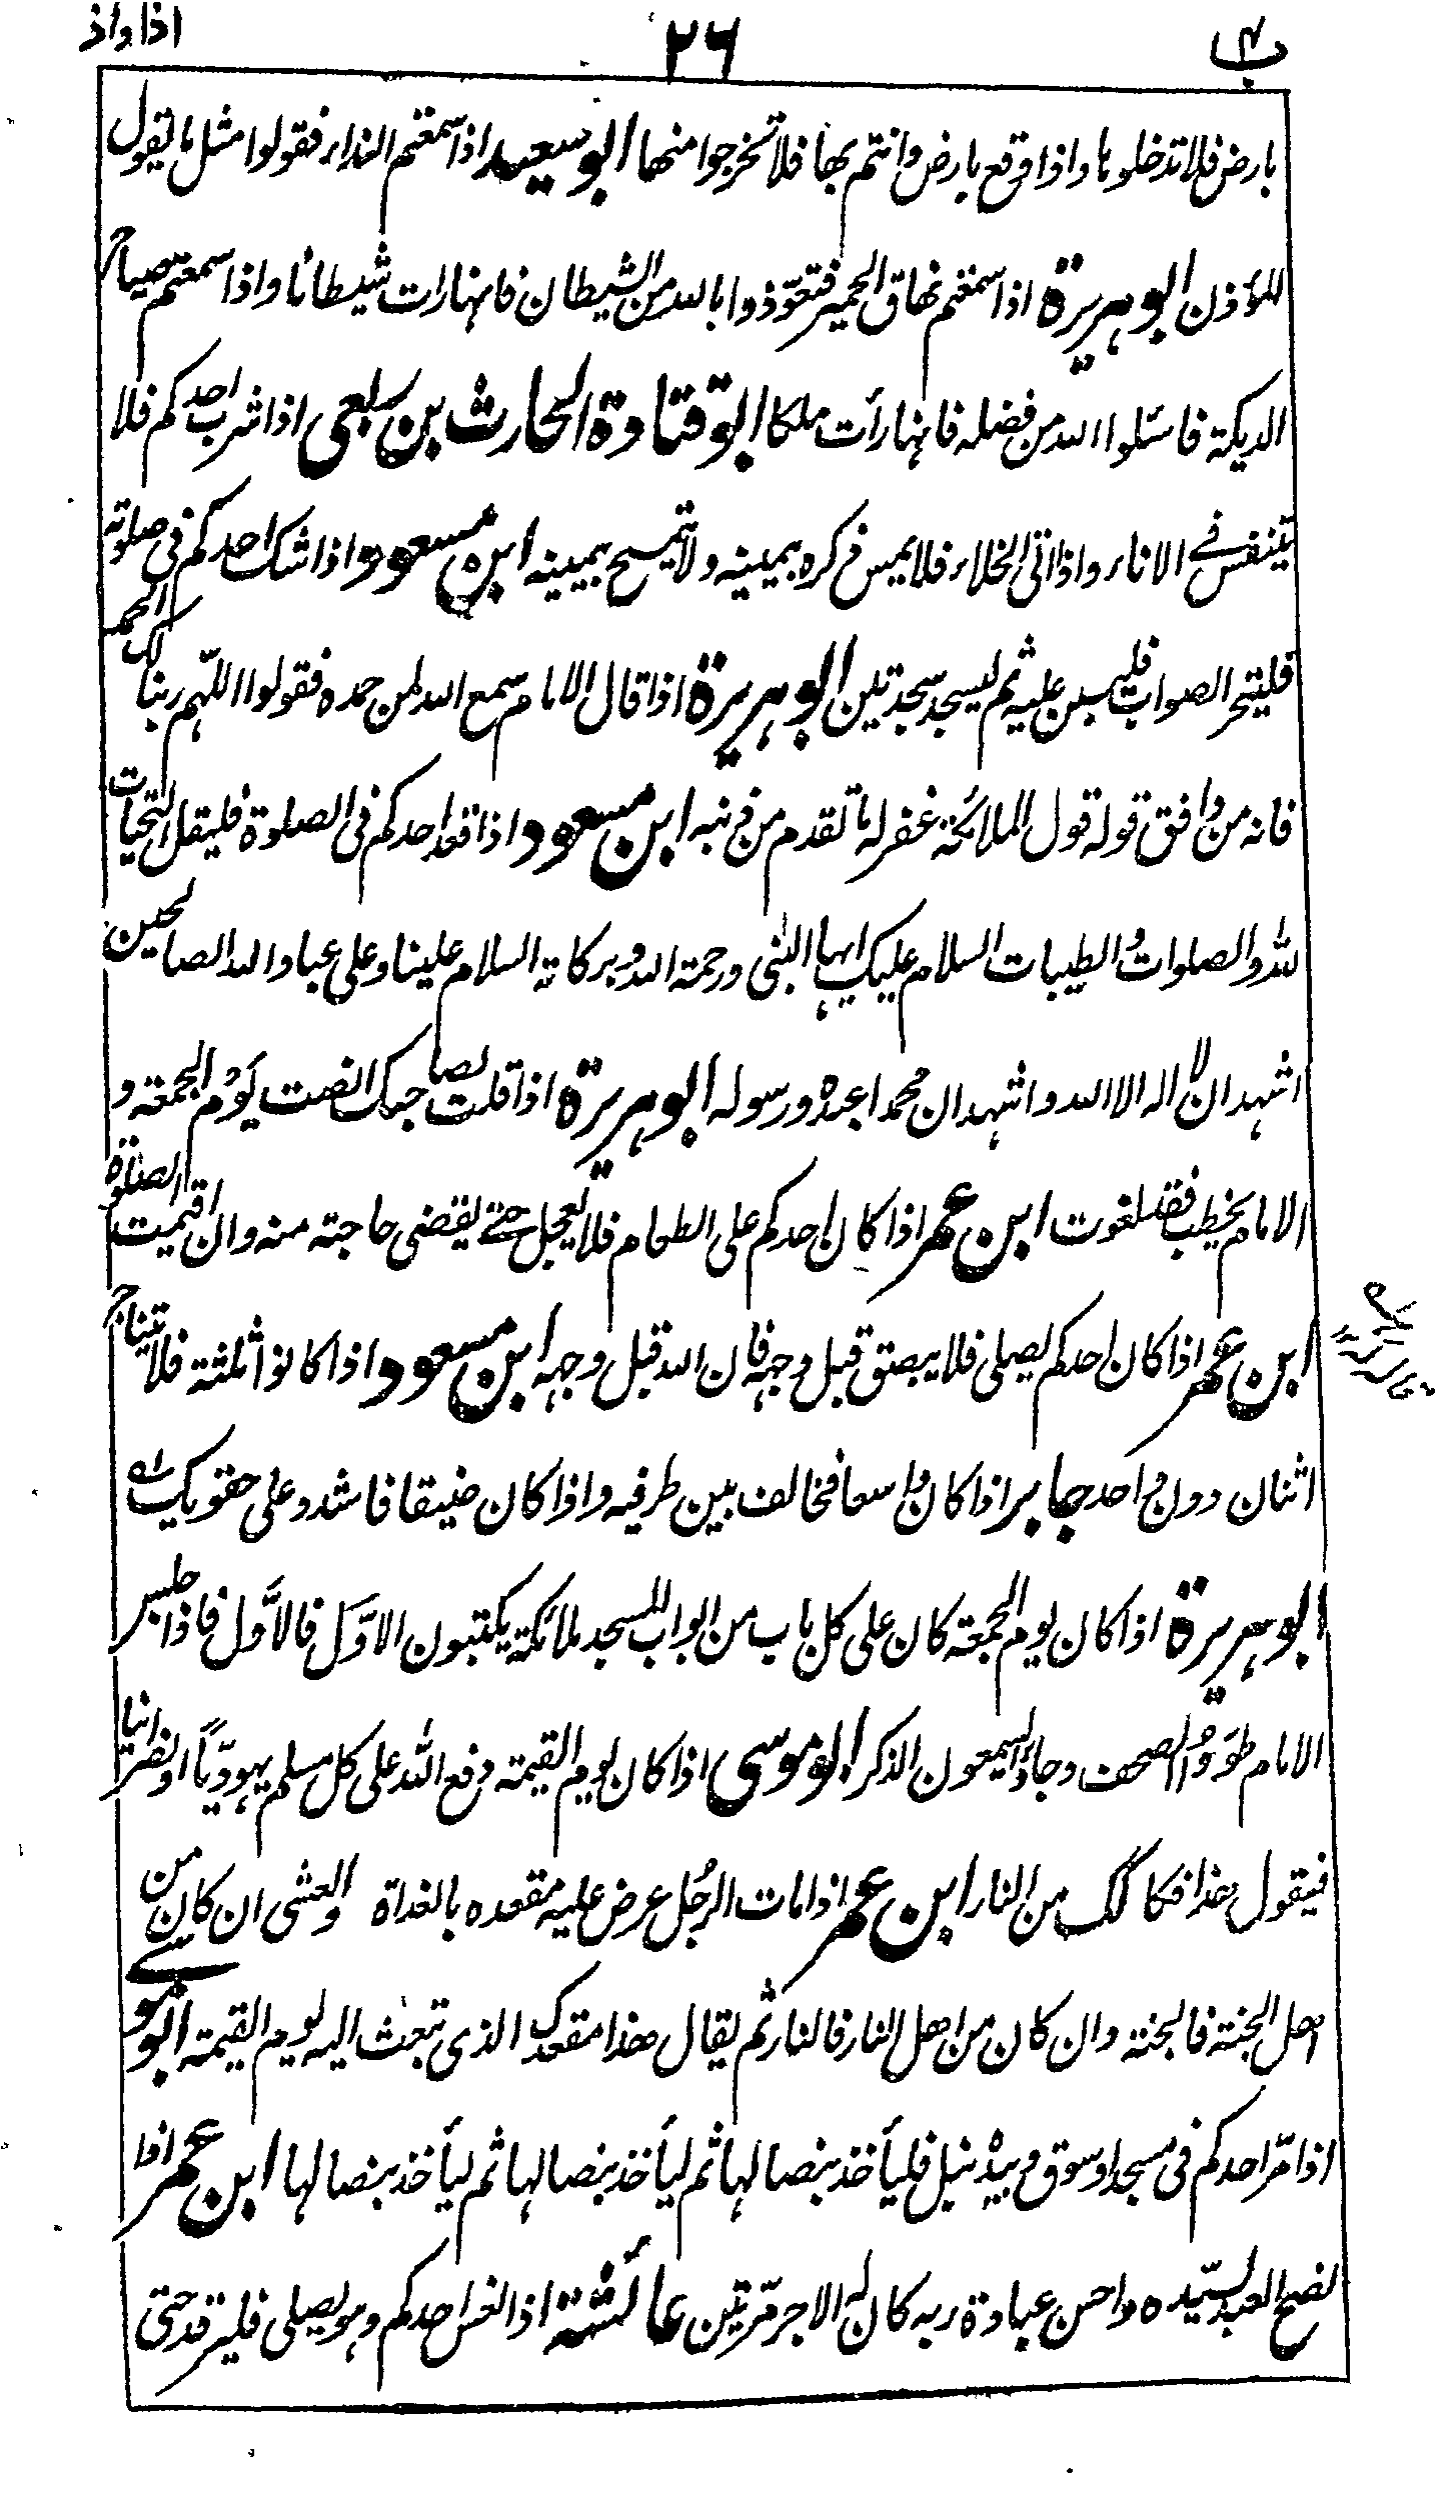 ب ٤ ٢٦ اذا واذ
بارض فلا تدخلوها واذا وقع بارض وانتم بها فلا تخرجوا منها ابو سعيد اذا سمعتم النداء فقولوا مثل ما يقول
المؤذن ابو هريرة اذا سمعتم نهاق الحمير فتعوّذوا بالله من الشيطان فانها رات شيطانا واذا سمعتم صياح
الديكة فاسئلوا الله من فضله فانها رأت ملكا ابو قتادة الحارث بن ربعى اذا شرب احدكم فلا
يتنفس في الاناء واذا اتى الخلاء فلا يمس ذكره بيمينه ولا يتمسح بيمينه ابن مسعود اذا شك احدكم في صلوته
فليتحر الصواب فليبن عليه ثم ليسجد سجدتين ابو هريرة اذا قال الامام سمع الله لمن حمده فقولوا اللهم ربنا لك الحمد
فانه من وافق قوله قول الملائكة غفر له ما تقدم من ذنبه ابن مسعود اذا قعد احدكم في الصلوة فليقل التحيات
لله والصلوات والطيبات السلام عليك ايها النبى ورحمة الله وبركاته السلام علينا وعلى عباد الله الصالحين
اشهد ان لا اله الا الله واشهد ان محمدا عبده ورسوله ابو هريرة اذا قلت لصاحبك انصت يوم الجمعة و
الامام يخطب فقد لغوت ابن عمر اذا كان احدكم على الطعام فلا يعجل حتى يقضى حاجته منه وان اقيمت الصلوة
ابن عمر اذا كان احدكم يصلى فلا يبصق قبل وجهه فان الله قبل وجهه ابن مسعود اذا كانوا ثلثة فلا يتناج
اثنان دون واحد جابر اذا كان واسعا فخالف بين طرفيه واذا كان ضيقا فاشدد على حقويك
ابو هريرة اذا كان يوم الجمعة كان على كل باب من ابواب المسجد ملائكة يكتبون الاوّل فالاوّل فاذا جلس
الامام طووا الصحف وجاؤا يسمعون الذكر ابو موسى اذا كان يوم القيمة دفع الله على كل مسلم يهوديّا او نصرانيا
فيقول هذا فكاكك من النار ابن عمر اذا مات الرجل عرض عليه مقعده بالغداة والعشى ان كان من
اهل الجنة فالجنة وان كان من اهل النار فالنار ثم يقال هذا مقعدك الذى تبعث اليه يوم القيمة ابو موسے
اذا مرّ احدكم في مسجد او سوق وبيده نبل فليأخذ بنصالها ثم ليأخذ بنصالها ثم ليأخذ بنصالها ابن عمر اذا
نصح العبد لسيّده واحسن عبادة ربه كان له الاجر مرّتين عائشة اذا نعس احدكم وهو يصلى فليرقد حتى